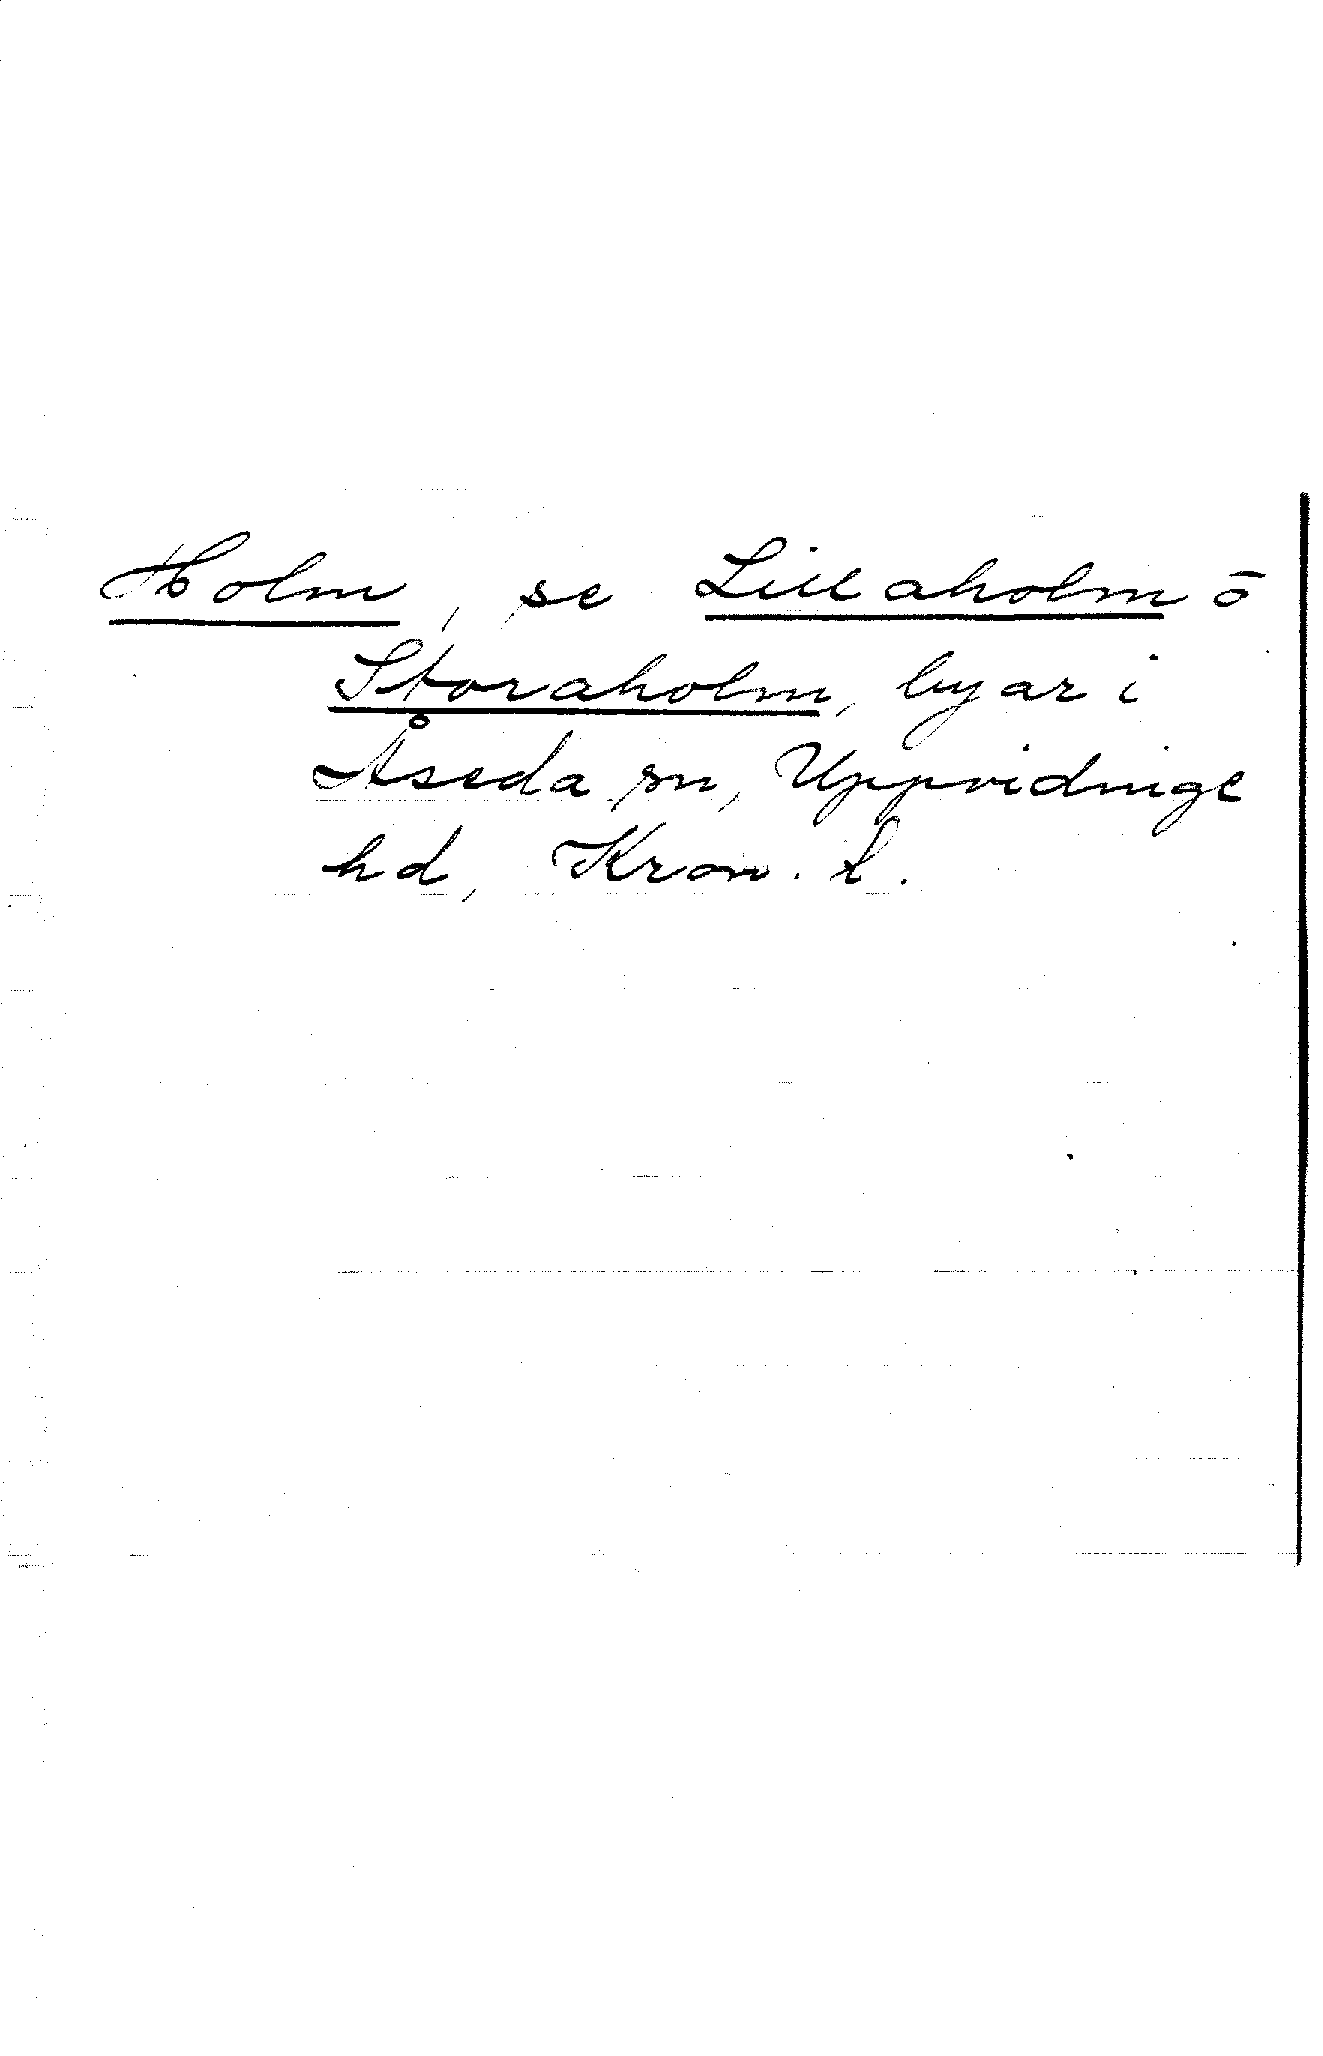 Holm, se Lillaholm o
Storaholm, byar i
Åseda sn, Uppvidinge
hd, Kron. l.